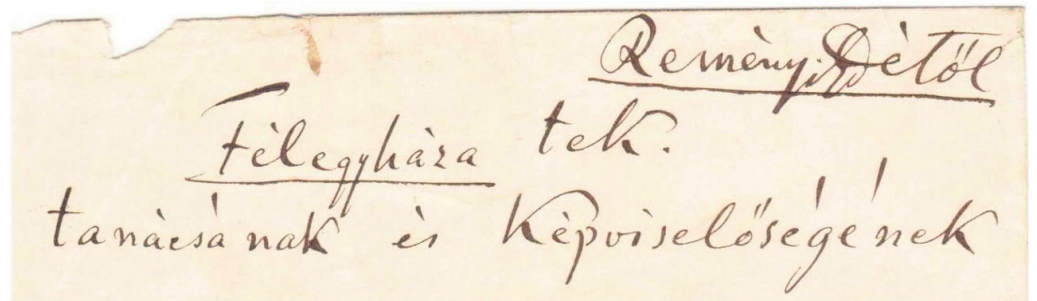 Reményi Edétől
Félegyháza tek.
tanácsának és Képviselőségének